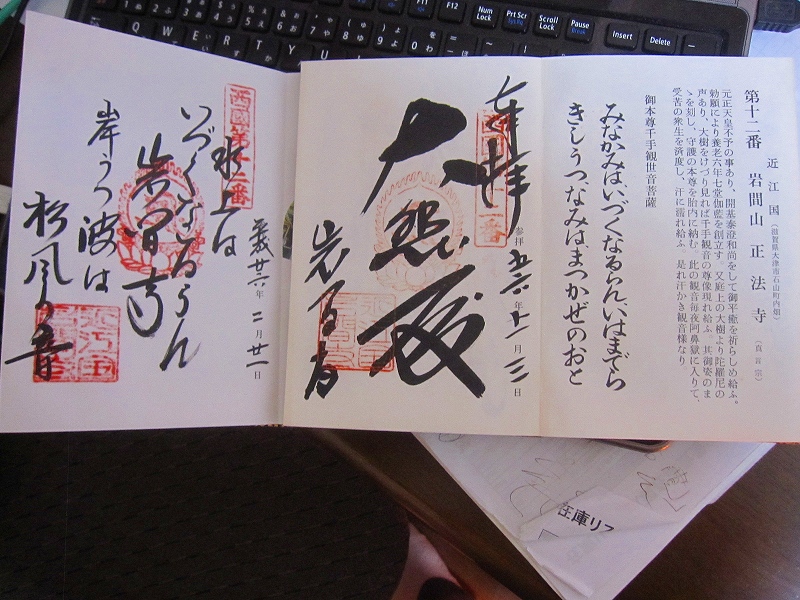 第十二番 近江国 岩間山 正法寺
(滋賀県大津市石山町内畑)
(真言宗)
元正天皇不予の事あり、開基泰澄和尚をして御平癒を祈らしめ給ふ。
勅願により養老六年七堂伽藍を創立す 又庭上の大樹より陀羅尼の
声あり、大樹をけづり見れば千手観音の尊像現れ給ふ 其御姿のま
ゝを刻し、守護の本尊を胎内に納む 此の観音毎夜阿鼻獄に入りて、
受苦の衆生を済度し、汗に濡れ給ふ 是れ汗かき観音様なり
御本尊千手観世音菩薩
みなかみはいづくなるらんいはまでら
きしうつなみはまつかぜのおと
奉拝
参拝 年十一月三日
大悲殿
岩間寺
西國第十二番
平成廿六年二月廿一日
水上は
いづくなるらん
岩間寺
岸うつ波は
松風の音
Num Lock
Prt Scr
SysRq
Scroll Lock
Pause
Break
Insert
Delete
F11
F12
Q
W
E
R
T
Y
U
在庫リス